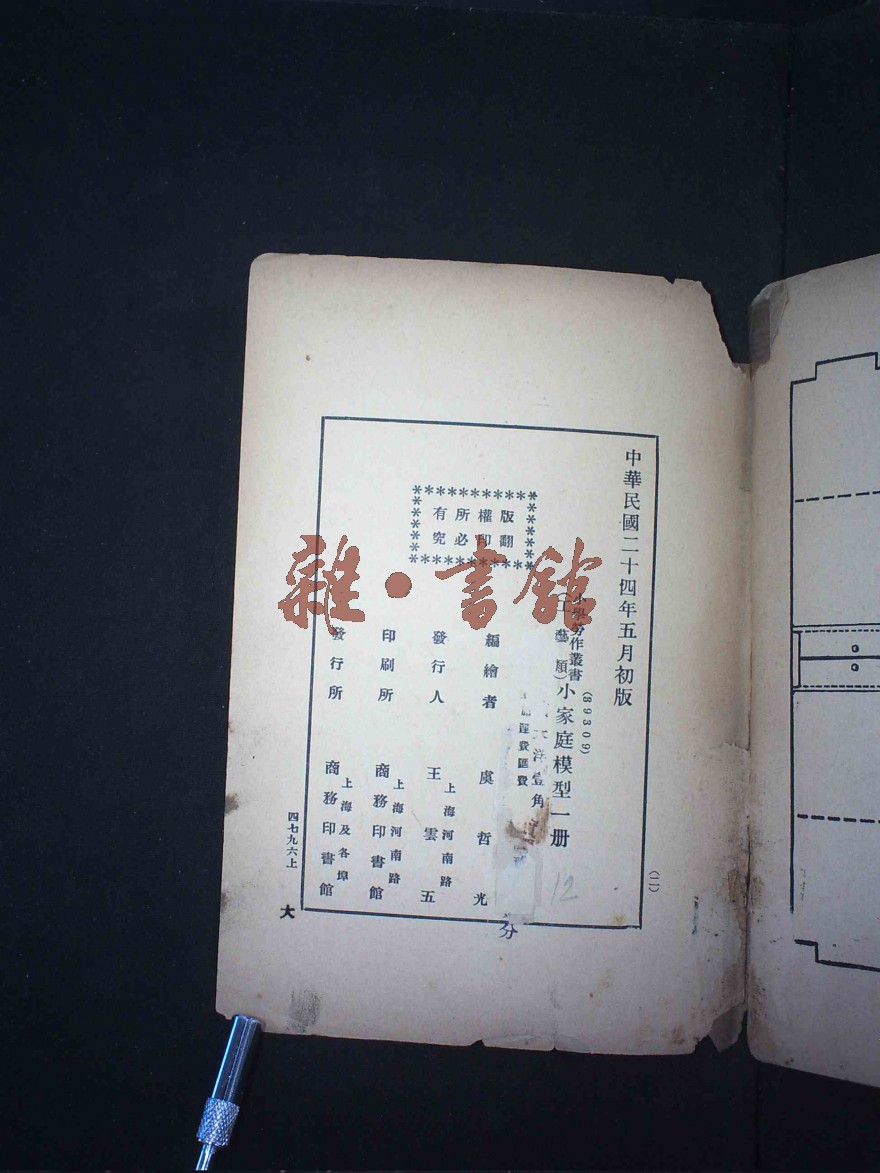 中華民國二十四年五月初版
(二)
小學勞作叢書
(工藝類)
(89309)
小家庭模型一册
大洋壹角
運費匯費
12
分
版權所有
翻印必究
編繪者 虞哲光
發行人 王雲五
上海河南路
印刷所 商務印書館
上海河南路
發行所 商務印書館
上海及各埠
四七九六上
大
雜·書館